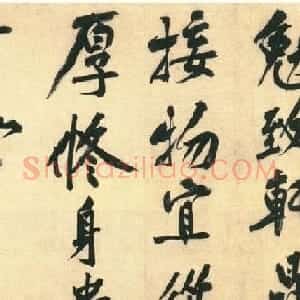 勉致軒
接物宜從
厚修身貴
Shufaziliao.com